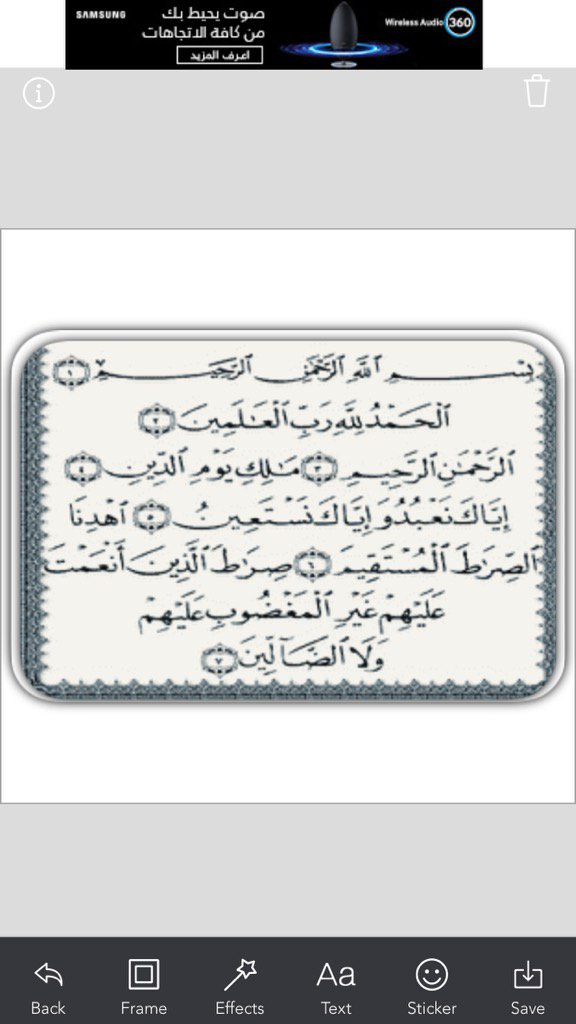 SAMSUNG
صوت يحيط بك
من كافة الاتجاهات
اعرف المزيد
Wireless Audio 360
بِسْمِ ٱللَّهِ ٱلرَّحْمَٰنِ ٱلرَّحِيمِ ١
ٱلْحَمْدُ لِلَّهِ رَبِّ ٱلْعَٰلَمِينَ ٢
ٱلرَّحْمَٰنِ ٱلرَّحِيمِ ٣ مَٰلِكِ يَوْمِ ٱلدِّينِ ٤
إِيَّاكَ نَعْبُدُ وَإِيَّاكَ نَسْتَعِينُ ٥ ٱهْدِنَا
ٱلصِّرَٰطَ ٱلْمُسْتَقِيمَ ٦ صِرَٰطَ ٱلَّذِينَ أَنْعَمْتَ
عَلَيْهِمْ غَيْرِ ٱلْمَغْضُوبِ عَلَيْهِمْ
وَلَا ٱلضَّآلِّينَ ٧
Back
Frame
Effects
Aa
Text
Sticker
Save